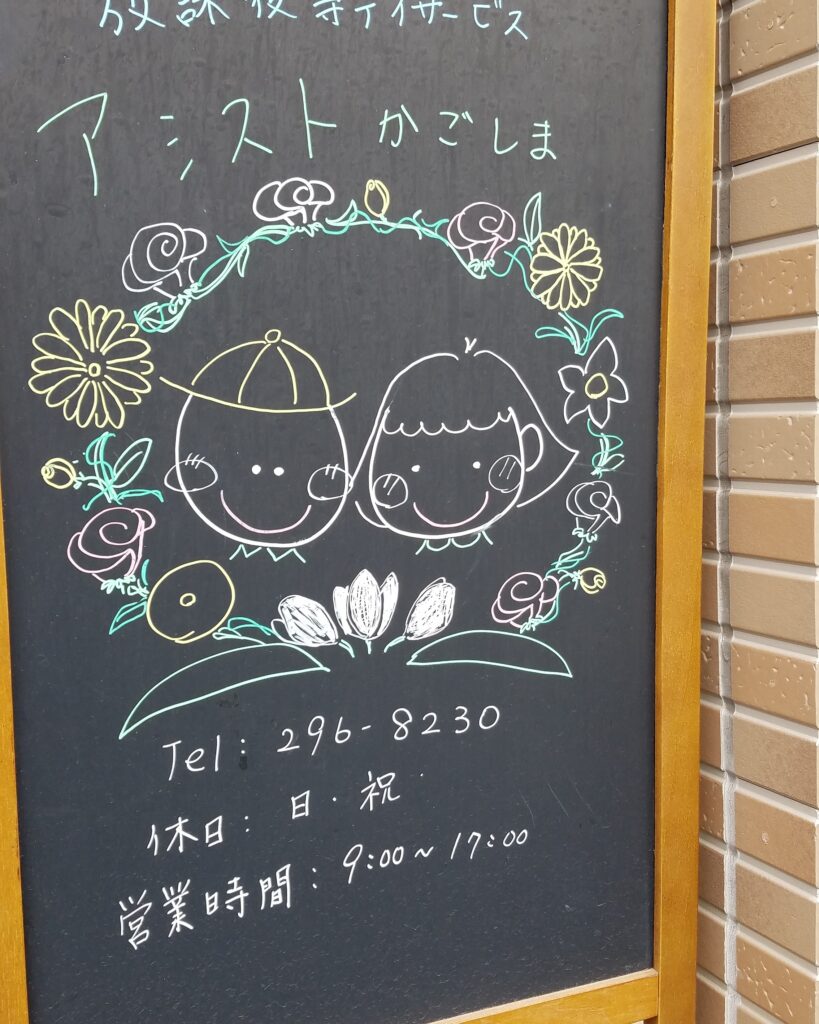 放課後等デイサービス
アシストかごしま
Tel: 296-8230
休日: 日・祝
営業時間: 9:00～17:00